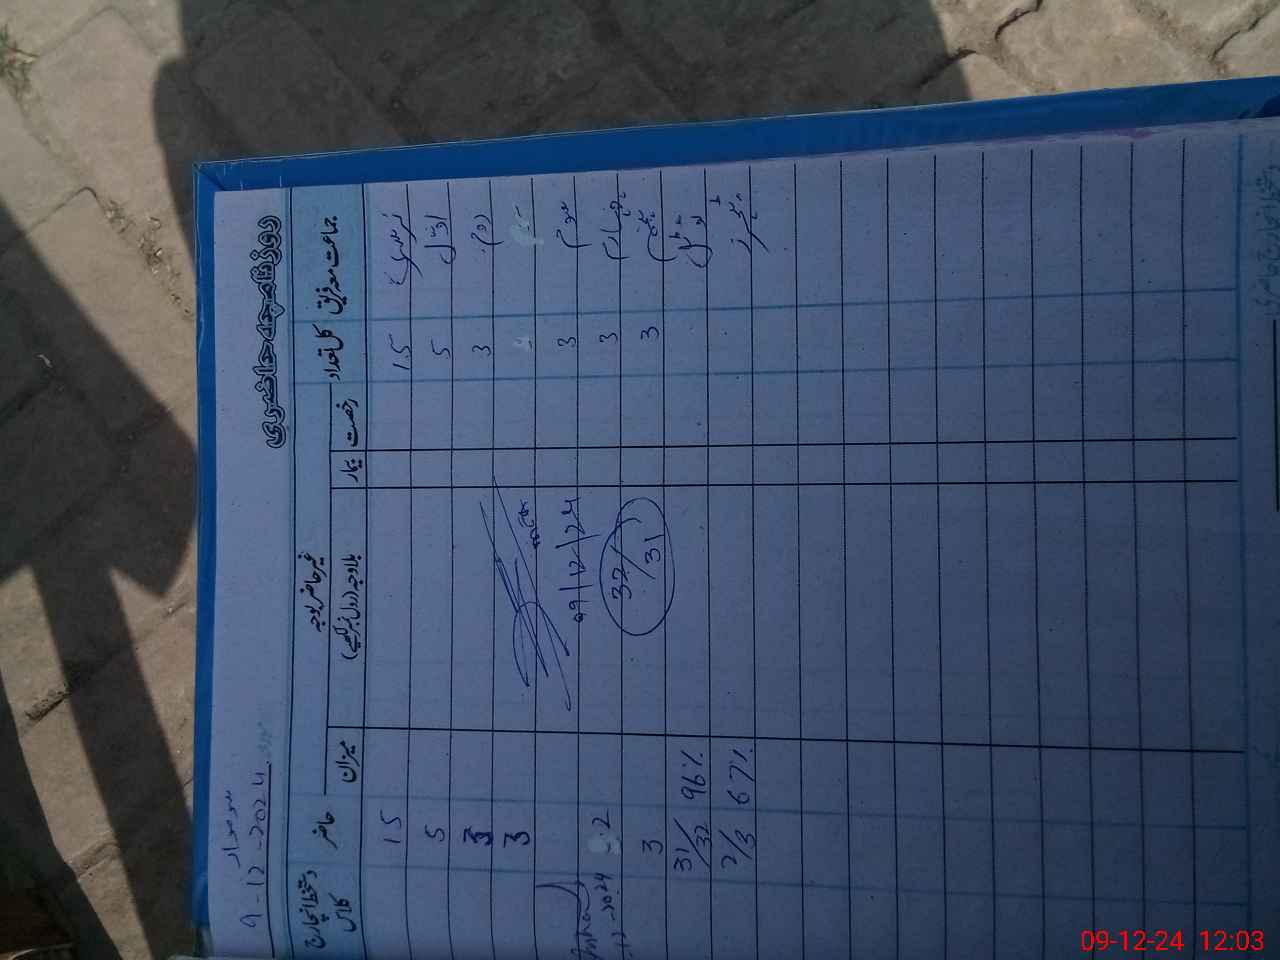 روزنامچہ حاضری
سوموار
9-12-2024
جماعت معہ فریق کل تعداد غیر حاضر بوجہ حاضر دستخط انچارج کلاس
رخصت بیمار بلاوجہ (رول نمبر لکھیے) میزان
نرسری 15 15
اول 5 5
دوم 3 3
3
سوم 3
چہارم 3 2
پنجم 3 3
ٹوٹل 31/32 96%
ٹیچرز 2/3 67%
09/12/24
32/31
12-2024
09-12-24 12:03